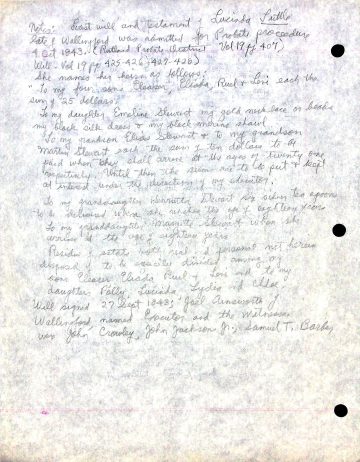 Notes: Last will and testament of Lucinda Little
late of Wallingford was admitted for Probate proceedings
4 Oct 1843. (Rutland Probate District Vol 19 p 407)
Will - Vol 19 pp 425-426; 427-428)
She names her heirs as follows:
"To my four sons Eleazer, Eliada, Buel & Levi each the
sum of 25 dollars.
To my daughter Emeline Stewart my gold necklace or beads
my black silk dress & my black merino shawl
To my grandson Eliada Stewart & to my grandson
Martin Stewart each the sum of ten dollars to be
paid when they shall arrive at the ages of twenty one
respectively. Until then the sums are to be put & kept
at interest under the direction of my executor.
To my granddaughter Henrietta Stewart six silver tea spoons
to be delivered when she reaches the age of eighteen years
To my granddaughter Stewart when she
arrives at the age of eighteen years
Residue of estate both real & personal not herein
disposed of to be equally divided among my
sons Eleazer Eliada Buel & Levi and to my
daughters Polly, Lucinda, Lydia and Chloe."
Will signed 27 Sept 1843; Joel Ainsworth of
Wallingford, named Executor and the Witnesses
was John Crowley, John Jackson Jr; Samuel T. Barber